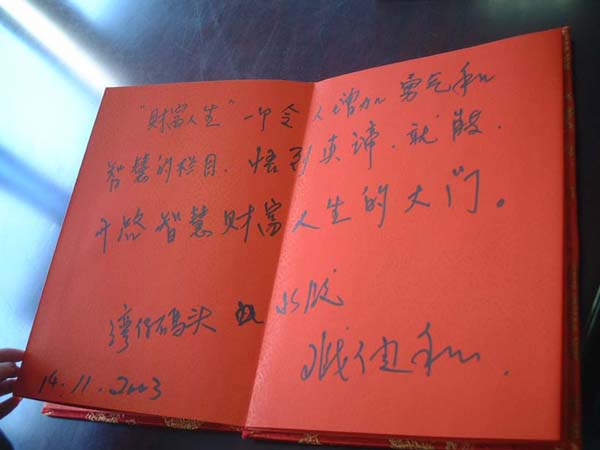 "财富人生"一个令人增加勇气和
智慧的栏目.悟到真谛.就能.
开启智慧财富人生的大门。
湾仔码头 水饺
臧健和.
14.11.2003